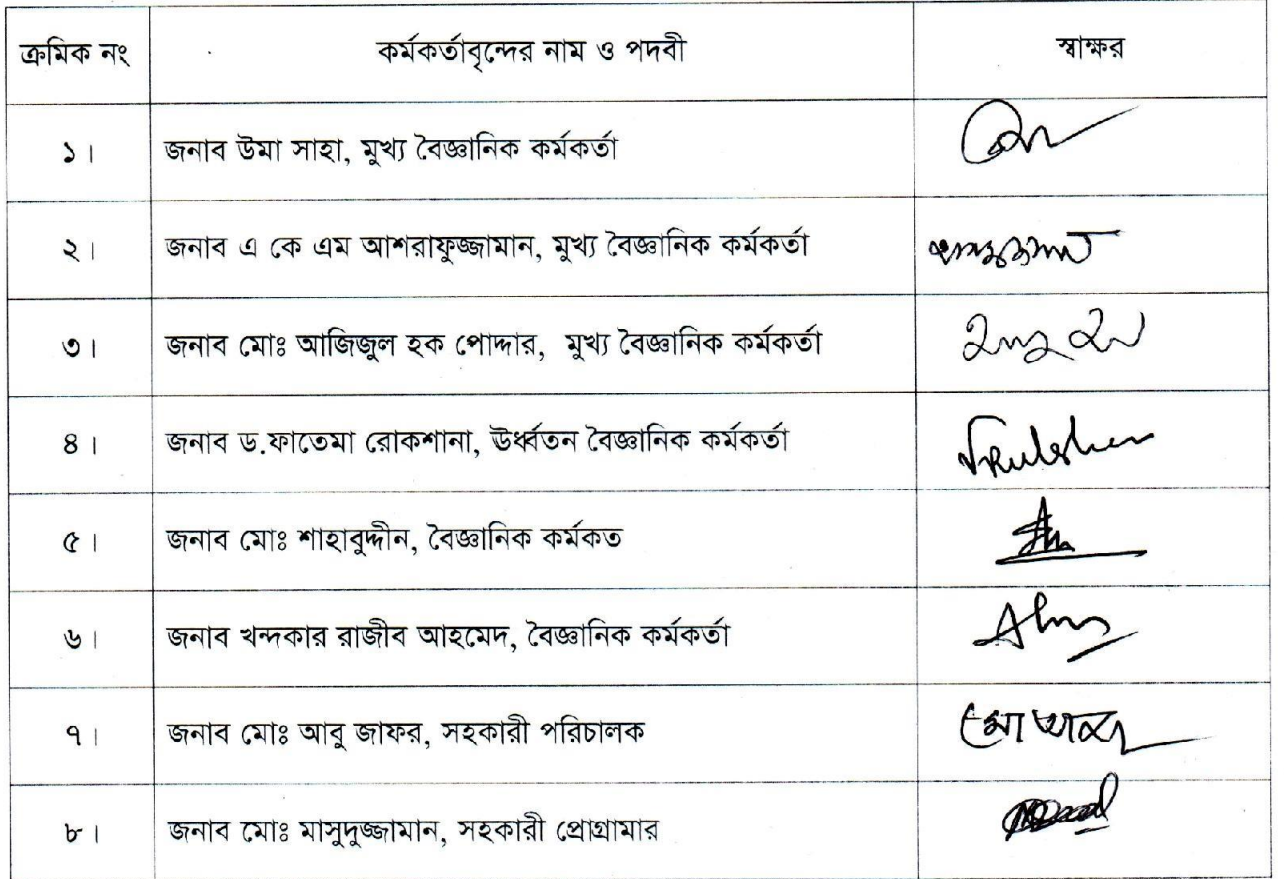 ক্রমিক নং কর্মকর্তাবৃন্দের নাম ও পদবী স্বাক্ষর
১। জনাব উমা সাহা, মুখ্য বৈজ্ঞানিক কর্মকর্তা
২। জনাব এ কে এম আশরাফুজ্জামান, মুখ্য বৈজ্ঞানিক কর্মকর্তা
৩। জনাব মোঃ আজিজুল হক পোদ্দার, মুখ্য বৈজ্ঞানিক কর্মকর্তা
৪। জনাব ড.ফাতেমা রোকশানা, ঊর্ধ্বতন বৈজ্ঞানিক কর্মকর্তা
৫। জনাব মোঃ শাহাবুদ্দীন, বৈজ্ঞানিক কর্মকত
৬। জনাব খন্দকার রাজীব আহমেদ, বৈজ্ঞানিক কর্মকর্তা
৭। জনাব মোঃ আবু জাফর, সহকারী পরিচালক
৮। জনাব মোঃ মাসুদুজ্জামান, সহকারী প্রোগ্রামার